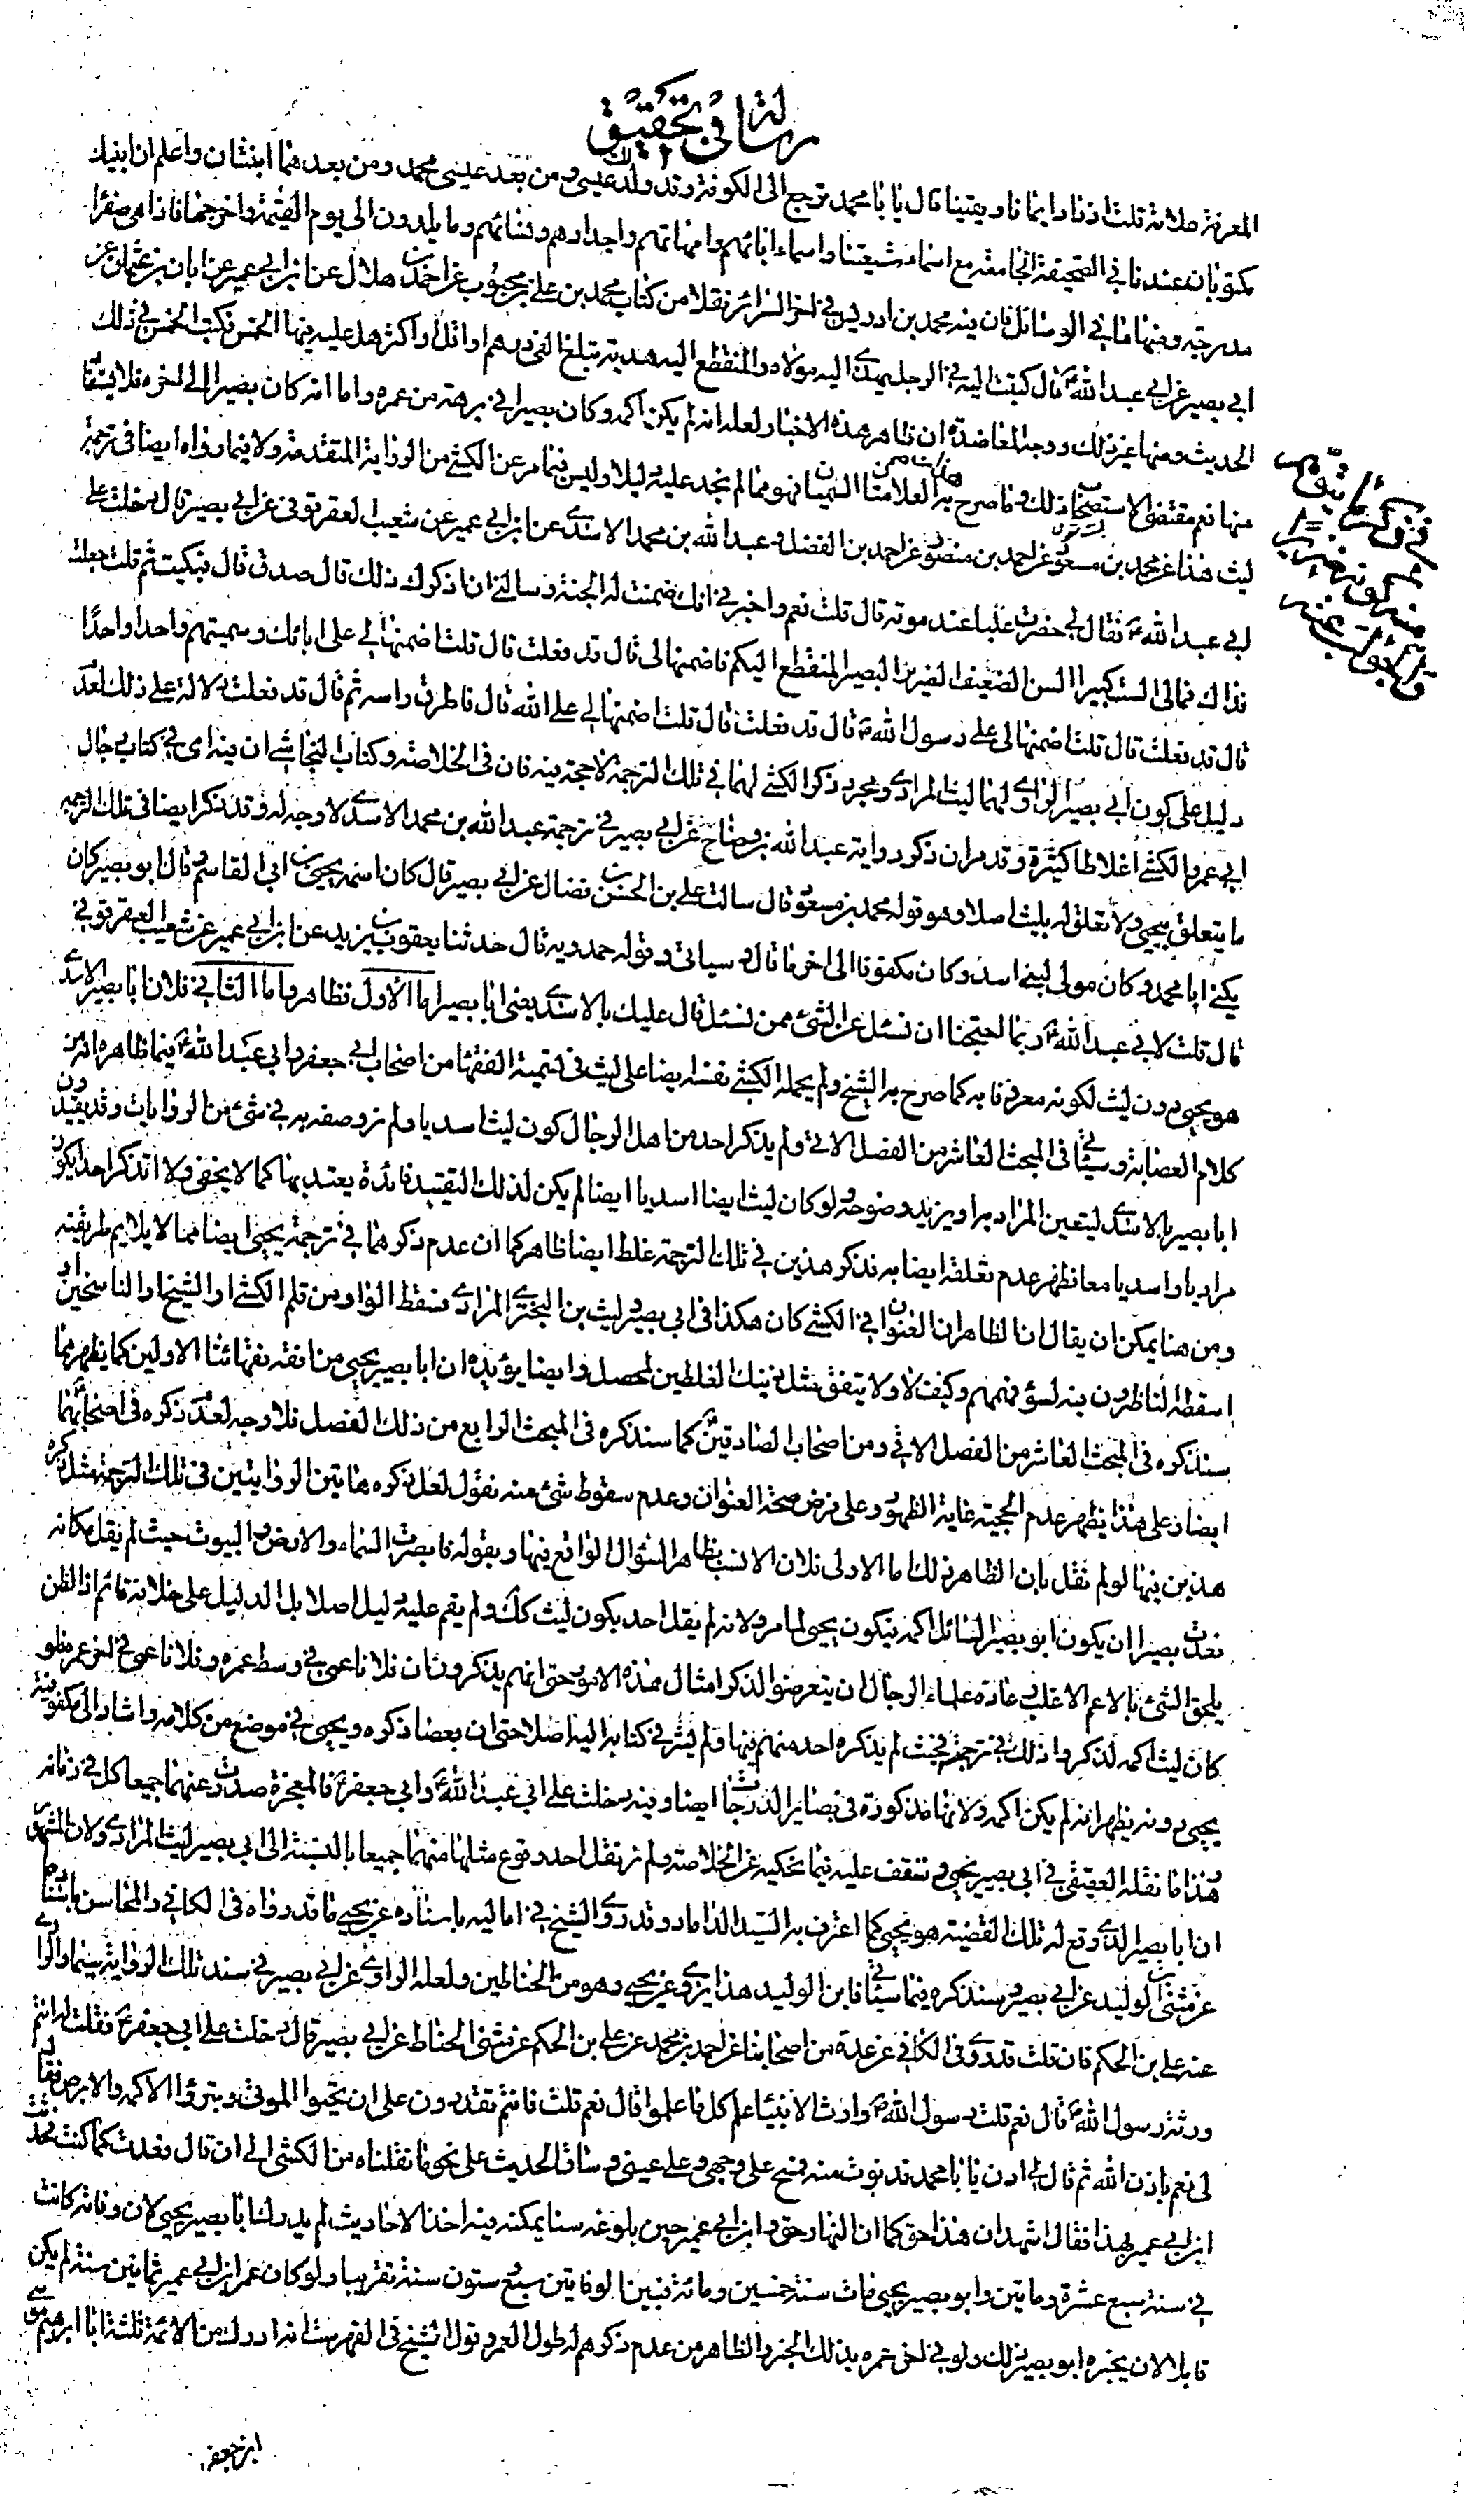 رسالة في تحقيق
المعرفة علامة ثلث اذنا وايمانا ويقينا قال يا با محمد ترجع الى الكوفة وقد ولد لك عيسى ومن بعد عيسى محمد ومن بعدهما ابنتان واعلم ان ابنيك
مكتوبان عندنا في الصحيفة الجامعة مع اسماء شيعتنا واسماء ابائهم وامهاتهم واجدادهم وفنائهم وما يلدون الى يوم القيمة واخرجها فاذا هى صفراء
مدرجة ومنها ما في الوسائل فان فيه محمد بن ادريس في اخر السرائر نقلا من كتاب محمد بن علي بن محبوب عن احمد بن هلال عن ابن ابي عمير عن ابان بن عثمان عن
ابي بصير عن ابي عبد الله ع قال كتبت اليه في الرجل يهدى اليه مولاه والمنقطع اليه هدية تبلغ الفى درهم او اقل او اكثر هل عليه فيها الخمس فكتب الخمس في ذلك
الحديث ومنها غير ذلك ووجه المعاضدة ان ظاهر هذه الاخبار لعله انه لم يكن اكمه وكان بصيرا في برهة من عمره واما انه كان بصيرا الى اخره فلا يستفاد
منها نعم مقتضى الاستصحاب ذلك وما صرح به العلامتا السميان فهو مما لم نجد عليه دليلا وليس فيما مر عن الكشي من الرواية المتقدمة ولا فيما رواه ايضا في ترجمة
ليث هذا عن محمد بن مسعود عن احمد بن منصور عن احمد بن الفضل وعبد الله بن محمد الاسدي عن ابن ابي عمير عن شعيب العقرقوفى عن ابي بصير قال دخلت على
ابي عبد الله ع فقال لي حضرت علباء عند موته قال قلت نعم واخبرني انك ضمنت له الجنة وسالني ان اذكرك ذلك قال صدق قال فبكيت ثم قلت جعلت
فداك فمالى الست كبير السن الضعيف الضرير البصير المنقطع اليكم فاضمنها لى قال قد فعلت قال قلت اضمنها لي على ابائك وسميتهم واحدا واحدا
قال قد فعلت قال قلت اضمنها لى على رسول الله ص قال قد فعلت قال قلت اضمنها لي على الله قال فاطرق راسه ثم قال قد فعلت دلالة على ذلك لعدم
دليل على كون ابي بصير الراوي لهما ليث المرادي ومجرد ذكر الكشي لهما في تلك الترجمة لا حجة فيه فان في الخلاصة وكتاب النجاشي ان فيه اى في كتاب رجال
ابي عمرو الكشي اغلاطا كثيرة وقد مر ان ذكر رواية عبد الله بن وضاح عن ابي بصير في ترجمة عبد الله بن محمد الاسدي لا وجه له وقد ذكر ايضا في تلك الترجمة
ما يتعلق بيحيى ولا تعلق له بليث اصلا وهو قوله محمد بن مسعود قال سالت علي بن الحسن بن فضال عن ابي بصير قال كان اسمه يحيى بن ابي القاسم وقال ابو بصير كان
يكنى ابا محمد وكان مولى لبني اسد وكان مكفوفا الى اخر ما قال وسياتى وقوله حمدويه قال حدثنا يعقوب بن يزيد عن ابن ابي عمير عن شعيب العقرقوفي
قال قلت لابي عبد الله ع ربما احتجنا ان نسئل عن الشئ ممن نسئل قال عليك بالاسدي يعنى ابا بصير اما الاول فظاهر واما الثاني فلان ابا بصير الاسدي
هو يحيى دون ليث لكونه معروفا به كما صرح به الشيخ ولم يحمله الكشي نفسه ايضا على ليث في تسمية الفقهاء من اصحاب ابي جعفر وابي عبد الله ع فيما ظاهره انه من
كلام العصابة وسيأتي في المبحث العاشر من الفصل الاتي ولم يذكر احد من اهل الرجال كون ليث اسديا ولم نر وصفه به في شئ من الروايات وقد يقيدون
ابا بصير بالاسدي ليتعين المراد به او يزيد وضوحه ولو كان ليث ايضا اسديا ايضا لم يكن لذلك التقييد فائدة يعتد بها كما لا يخفى ولا انذكر احد بكونه
مراديا واسديا معا فظهر عدم تعلقه ايضا به فذكر هذين في تلك الترجمة غلط ايضا ظاهر كما ان عدم ذكرهما في ترجمة يحيى ايضا مما لا يلايم طريقته
ومن هنا يمكن ان يقال ان الظاهر ان العنوان في الكشي كان هكذا في ابي بصير وليث بن البختري المرادي فسقط الواو من قلم الكشي او الشيخ او الناسخين او
اسقطه الناظرون فيه لسوء فهمهم وكيف لا ولا يتفق مثل ذينك الغلطين لمحصل وايضا يؤيده ان ابا بصير يحيى من افقه فقهائنا الاولين كما يظهر مما
سنذكره في المبحث العاشر من الفصل الاتي ومن اصحاب الصادقين ع كما سنذكره في المبحث الرابع من ذلك الفصل فلا وجه لعدم ذكره في اصحابهما
ايضا وعلى هذا يظهر عدم الحجية غاية الظهور وعلى فرض صحة العنوان وعدم سقوط شئ منه نقول لعل ذكره هاتين الروايتين في تلك الترجمة مثل ذكره
هذين فيها لو لم نقل بان الظاهر ذلك اما الاولى فلان الانسب بظاهر السؤال الواقع فيها وبقوله فابصرت السماء والارض والبيوت حيث لم يقل مكانه
فعدت بصيرا ان يكون ابو بصير السائل اكمه فيكون يحيى لما مر ولانه لم يقل احد بكون ليث كك ولم يقم عليه دليل اصلا بل الدليل على خلافه قائم اذ الظن
يلحق الشئ بالاعم الاغلب وعادة علماء الرجال ان يتعرضوا لذكر امثال هذه الامور حتى انهم يذكرون ان فلانا عمى في وسط عمره وفلانا عمى في اخر عمره فلو
كان ليث اكمه لذكروا ذلك في ترجمته فحيث لم يذكره احد منهم فيها ولم يشر في كتابه اليه اصلا حتى ان بعضا ذكره ويحيى في موضع من كلامه واشار الى مكفوفية
يحيى دونه يظهر انه لم يكن اكمه ولانها مذكورة في بصاير الدرجات ايضا وفيه دخلت على ابي عبد الله ع وابي جعفر ع فالمعجزة صدرت عنهما جميعا كل في زمانه
وهذا ما نقله العقيقى في ابي بصير يحيى وستقف عليه فيما نحكيه عن الخلاصة ولم نر نقل احد وقوع مثلها منهما جميعا بالنسبة الى ابي بصير ليث المرادي ولان المشهور
ان ابا بصير الذي وقع له تلك القضية هو يحيى كما اعترف به السيد الداماد وقد روى الشيخ في اماليه باسناده عن يحيى ما قد رواه في الكافي والمحاسن باسنادهما
عن مثنى بن الوليد عن ابي بصير وسنذكره فيما سيأتي فابن الوليد هذا يروي عن يحيى وهو من الحناطين ولعله الراوي عن ابي بصير في سند تلك الرواية سيما والراوي
عنه علي بن الحكم فان قلت قد روى في الكافي عن عدة من اصحابنا عن احمد بن محمد عن علي بن الحكم عن مثنى الحناط عن ابي بصير قال دخلت على ابي جعفر ع فقلت له انتم
ورثة رسول الله ص قال نعم قلت رسول الله ص وارث الانبياء علم كل ما علموا قال نعم قلت فانتم تقدرون على ان تحيوا الموتى وتبرؤا الاكمه والابرص فقال
لى نعم باذن الله ثم قال لي ادن يا با محمد فدنوت منه فمسح على وجهي وعلى عيني وساق الحديث على نحو ما نقلناه من الكشي الى ان قال فعدت كما كنت فحدثت
ابن ابي عمير بهذا فقال اشهد ان هذا حق كما ان النهار حق وابن ابي عمير حين بلوغه سنا يمكنه فيه اخذ الاحاديث لم يدرك ابا بصير يحيى لان وفاته كانت
في سنة سبع عشرة ومأتين وابو بصير يحيى مات سنة خمسين ومائة فبين الوفاتين سبع وستون سنة تقريبا ولو كان عمر ابن ابي عمير ثمانين سنة لم يكن
قابلا لان يخبره ابو بصير بذلك ولو في اخر عمره بذلك الخبر والظاهر من عدم ذكرهم له طول العمر وقول الشيخ في الفهرست انه ادرك من الائمة ثلثة ابا ابراهيم موسى
ابن جعفر